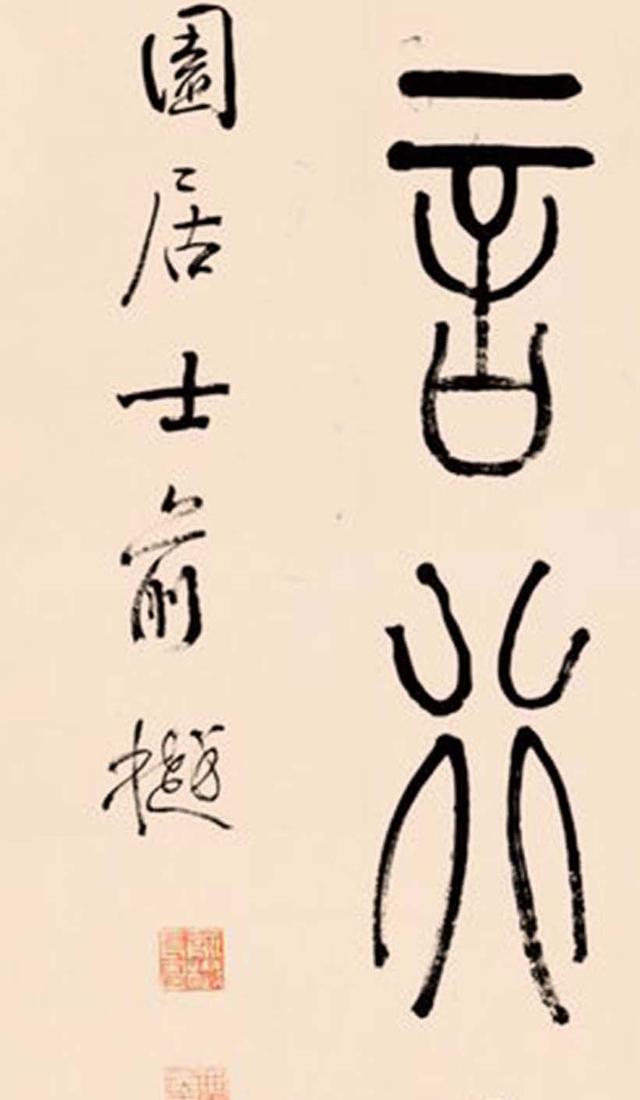 言行
園居士俞樾